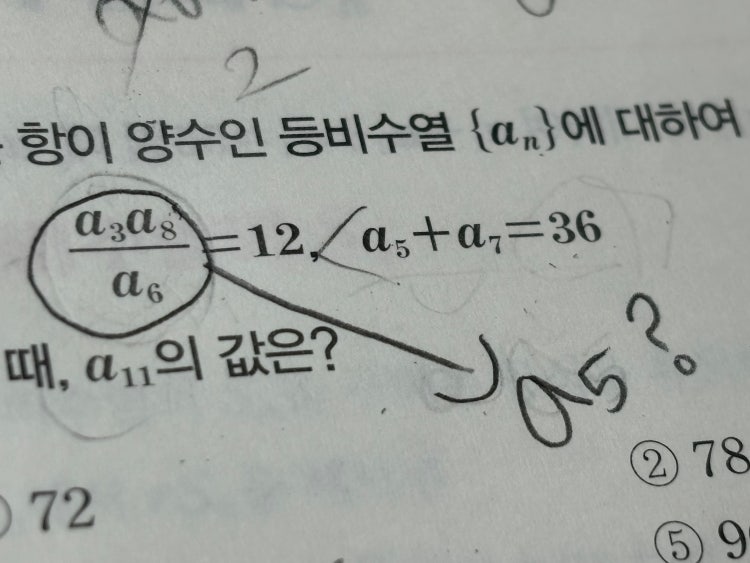 2
항이 양수인 등비수열 {aₙ}에 대하여
a₃a₈/a₆=12, a₅+a₇=36
때, a₁₁의 값은?
a₅?
② 78
72
⑤ 9